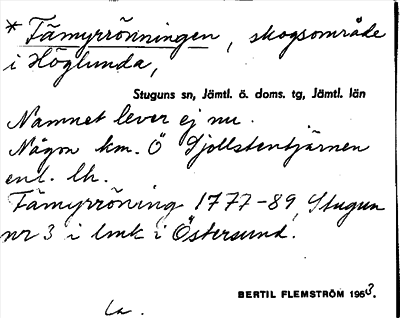 * Tämyrröningen, skogsområde
i Höglunda,
Stuguns sn, Jämtl. ö. doms. tg, Jämtl. län
Namnet lever ej nu.
Någon km. Ö Djollstentjärnen
enl. lh.
Tämyrröning 1777-89, Stugun
nr 3 i lmk i Östersund.
BERTIL FLEMSTRÖM 1963.
La.